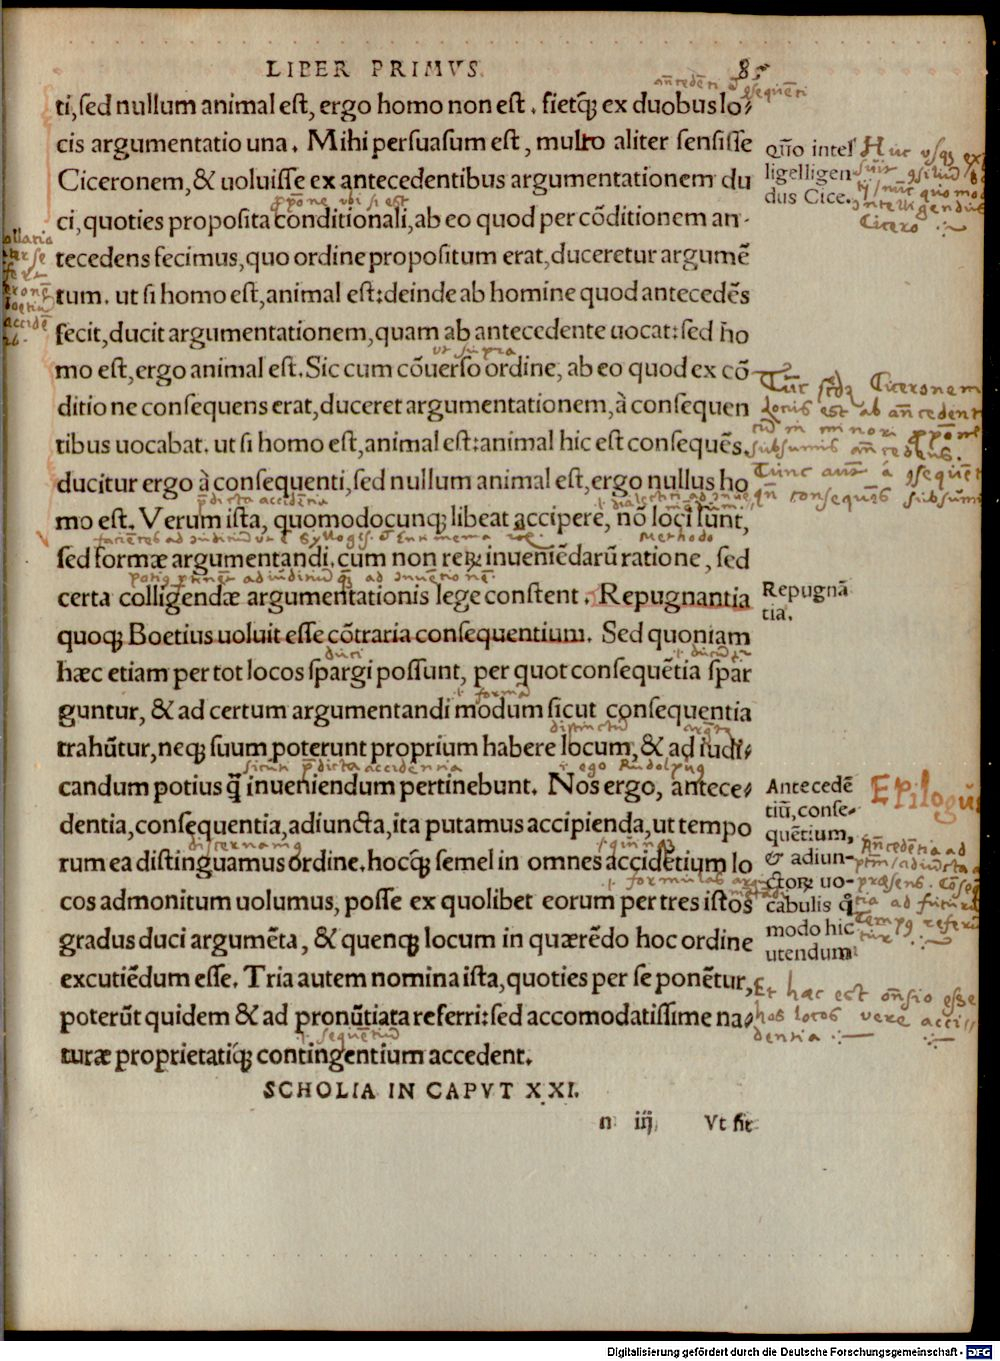 LIBER PRIMVS. 85
ti, sed nullum animal est, ergo homo non est. fietq́ꝫ ex duobus lo⸗
cis argumentatio una. Mihi persuasum est, multo aliter sensisse
Ciceronem, & uoluisse ex antecedentibus argumentationem du
ci, quoties proposita conditionali, ab eo quod per cōditionem an-
tecedens fecimus, quo ordine propositum erat, duceretur argumē
tum. ut si homo est, animal est: deinde ab homine quod antecedēs
fecit, ducit argumentationem, quam ab antecedente uocat: sed ho
mo est, ergo animal est. Sic cum cōuerso ordine, ab eo quod ex cō
ditione consequens erat, duceret argumentationem, à consequen
tibus uocabat. ut si homo est, animal est: animal hic est consequēs.
ducitur ergo à consequenti, sed nullum animal est, ergo nullus ho
mo est. Verum ista, quomodocunqꝫ libeat accipere, nō loci sunt,
sed formæ argumentandi. cum non reꝝ inueniēdarū ratione, sed
certa colligendæ argumentationis lege constent. Repugnantia
quoqꝫ Boetius uoluit esse cōtraria consequentium. Sed quoniam
hæc etiam per tot locos spargi possunt, per quot consequētia spar
guntur, & ad certum argumentandi modum sicut consequentia
trahūtur, neqꝫ suum poterunt proprium habere locum, & ad iudi⸗
candum potius q̄ inueniendum pertinebunt. Nos ergo, antece⸗
dentia, consequentia, adiuncta, ita putamus accipienda, ut tempo
rum ea distinguamus ordine. hocqꝫ semel in omnes accidētium lo
cos admonitum uolumus, posse ex quolibet eorum per tres istos
gradus duci argumēta, & quenqꝫ locum in quærēdo hoc ordine
excutiēdum esse. Tria autem nomina ista, quoties per se ponētur,
poterūt quidem & ad pronūtiata referri: sed accomodatissime na⸗
turæ proprietatiq́ꝫ contingentium accedent.
SCHOLIA IN CAPVT XXI.
n iij Vt fit
quo intel
ligelligen
dus Cice.
Huc usqꝫ
quomo
intelligendus
Cicero
Tūc
Ciceronem
locis est ab antecedent
minori
subsumis
Tunc
consequēs subsum
Repugnā
tia.
Antecedē
tiū, conse⸗
quētium,
& adiun-
ctorꝝ uo-
cabulis q̄
modo hic
utendum
Epilogus
Antecedētia ad
adiūcta
præsens. Cōseq
tia ad futurū
tempꝰ referū
tur
Et hæc est
hos locos vere acci
dentia
ut supra
prædicta accidentia
Methodo
duci
formā
ego Rudolphus
Digitalisierung gefördert durch die Deutsche Forschungsgemeinschaft - DFG